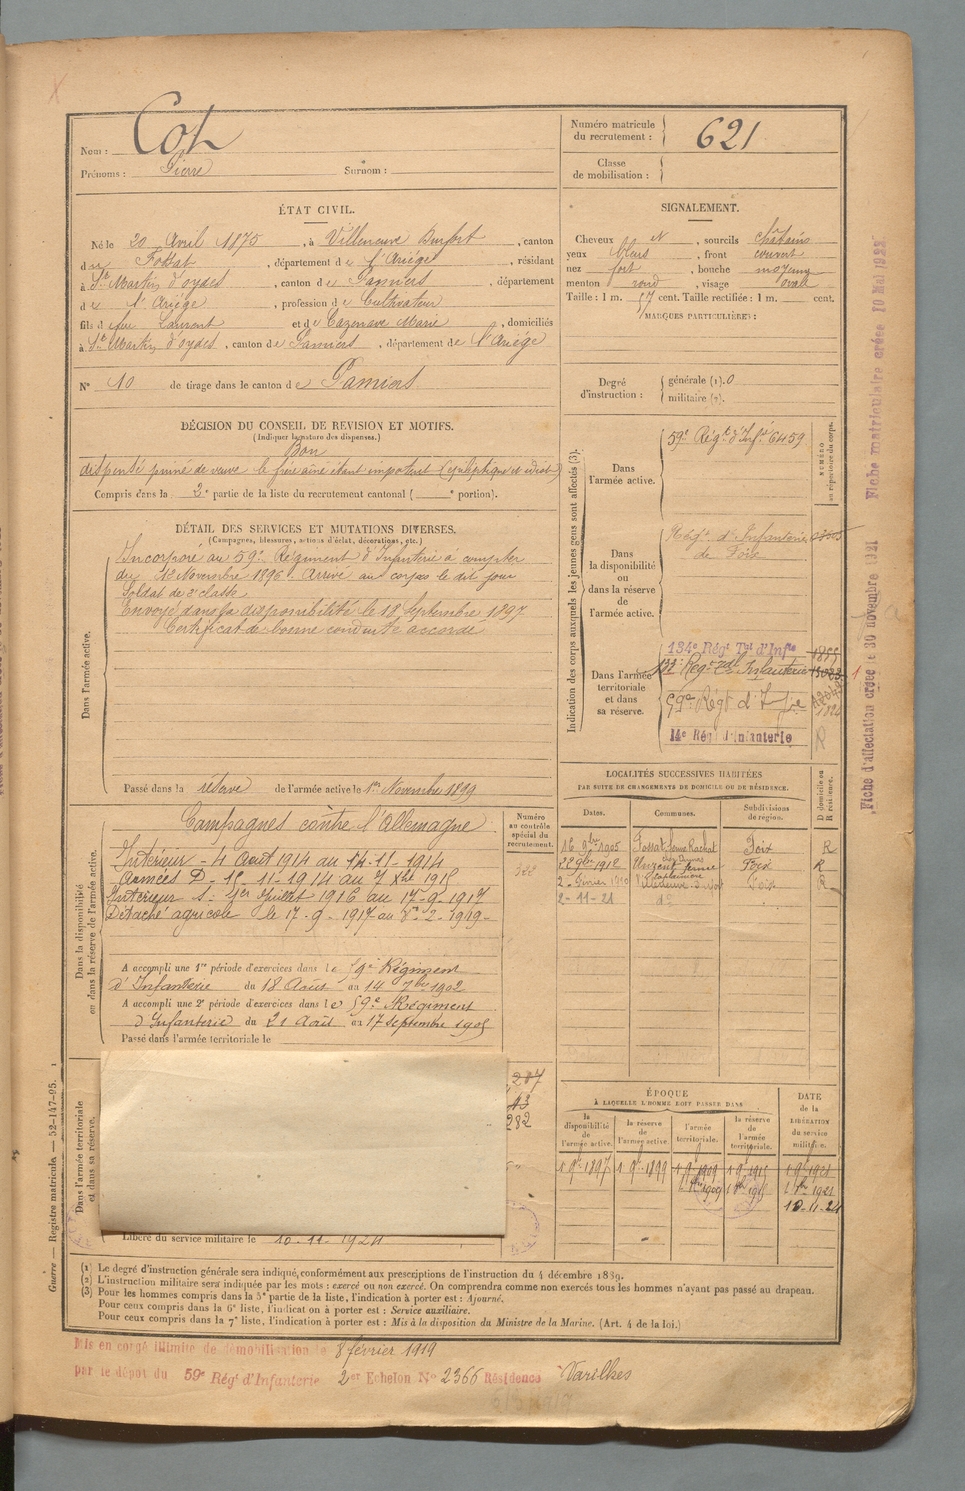 Nom : Cot
Prénoms : Pierre Surnom :
Numéro matricule du recrutement : 621
Classe de mobilisation :
ÉTAT CIVIL.
Né le 20 Avril 1875, à Villeneuve Durfort, canton
du Fossat, département de l'Ariège, résidant
à St Martin d'oydes, canton de Pamiers, département
de l'Ariège, profession de Cultivateur
fils de feu Laurent et de Cazenave Marie, domiciliés
à St Martin d'oydes, canton de Pamiers, département de l'Ariège
N° 10 de tirage dans le canton de Pamiers
SIGNALEMENT.
Cheveux et, sourcils châtains
yeux bleus, front couvert
nez fort, bouche moyenne
menton rond, visage ovale
Taille : 1 m. 57 cent. Taille rectifiée : 1 m. cent.
MARQUES PARTICULIÈRES :
Degré d'instruction : générale (1). 0
militaire (2).
DÉCISION DU CONSEIL DE REVISION ET MOTIFS.
(Indiquer la nature des dispenses.)
Bon
dispensé puîné de veuve le frère aîné étant impotent (épileptique et idiot)
Compris dans la 2e partie de la liste du recrutement cantonal ( e portion).
DÉTAIL DES SERVICES ET MUTATIONS DIVERSES.
(Campagnes, blessures, actions d'éclat, décorations, etc.)
Dans l'armée active.
Incorporé au 59e Régiment d'Infanterie à compter
du 12 Novembre 1896. Arrivé au corps le dit jour
Soldat de 2e classe
Envoyé dans la disponibilité le 18 Septembre 1897
Certificat de bonne conduite accordé
Passé dans la réserve de l'armée active le 1er Novembre 1899
Indication des corps auxquels les jeunes gens sont affectés (3).
NUMÉRO au répertoire du corps.
Dans l'armée active.
59e Régt d'Infie 6459
Dans la disponibilité ou dans la réserve de l'armée active.
Régt d'Infanterie
de Foix
Dans l'armée territoriale et dans sa réserve.
134e Régt Tal d'Infie 1855
132e Régt tal Infanterie
59e Régt d'Infie
14e Régt d'Infanterie R
Dans la disponibilité et dans la réserve de l'armée active.
Numéro au contrôle spécial du recrutement.
Campagnes contre l'Allemagne
Intérieur - 4 Août 1914 au 14-11-1914
Armées D - 15-11-1914 au 7 Xbre 1915
Intérieur S. 1er Juillet 1916 au 17-9-1917
Détaché agricole le 17-9-1917 au
A accompli une 1re période d'exercices dans le 59e Régiment
d'Infanterie du 18 Août au 14 7bre 1902
A accompli une 2e période d'exercices dans le 59e Régiment
d'Infanterie du 21 Août au 17 septembre 1905
Passé dans l'armée territoriale le
322
LOCALITÉS SUCCESSIVES HABITÉES
PAR SUITE DE CHANGEMENTS DE DOMICILE OU DE RÉSIDENCE.
D domicile ou R résidence.
Dates. Communes. Subdivisions de région.
16 9bre 1905 Fossat Foix R
22 9bre 1912 Unzent Foix R
2 - Février 1910 Villeneuve Durfort Foix R
2-11-21 do
Dans l'armée territoriale et dans sa réserve.
287
43
282
Libéré du service militaire le 10-11-1921
ÉPOQUE
À LAQUELLE L'HOMME DOIT PASSER DANS
la disponibilité de l'armée active. la réserve de l'armée active. l'armée territoriale. la réserve de l'armée territoriale. DATE de la LIBÉRATION du service militaire.
1 9bre 1897 1 9bre 1899 1 9bre 1909 1 9bre 1915 1 9bre 1921
10-11-21
(1) Le degré d'instruction générale sera indiqué, conformément aux prescriptions de l'instruction du 4 décembre 1889.
(2) L'instruction militaire sera indiquée par les mots : exercé ou non exercé. On comprendra comme non exercés tous les hommes n'ayant pas passé au drapeau.
(3) Pour les hommes compris dans la 5e partie de la liste, l'indication à porter est : Ajourné.
Pour ceux compris dans la 6e liste, l'indication à porter est : Service auxiliaire.
Pour ceux compris dans la 7e liste, l'indication à porter est : Mis à la disposition du Ministre de la Marine. (Art. 4 de la loi.)
Mis en congé illimité de démobilisation le 8 février 1919
par le dépôt du 59e Régt d'Infanterie 2er Echelon No 2366 Résidence Varilhes
Guerre — Registre matricule. — 52-147-95.
Fiche d'affectation créée le 30 novembre 1921
Fiche matriculaire créée 10 Mai 1922